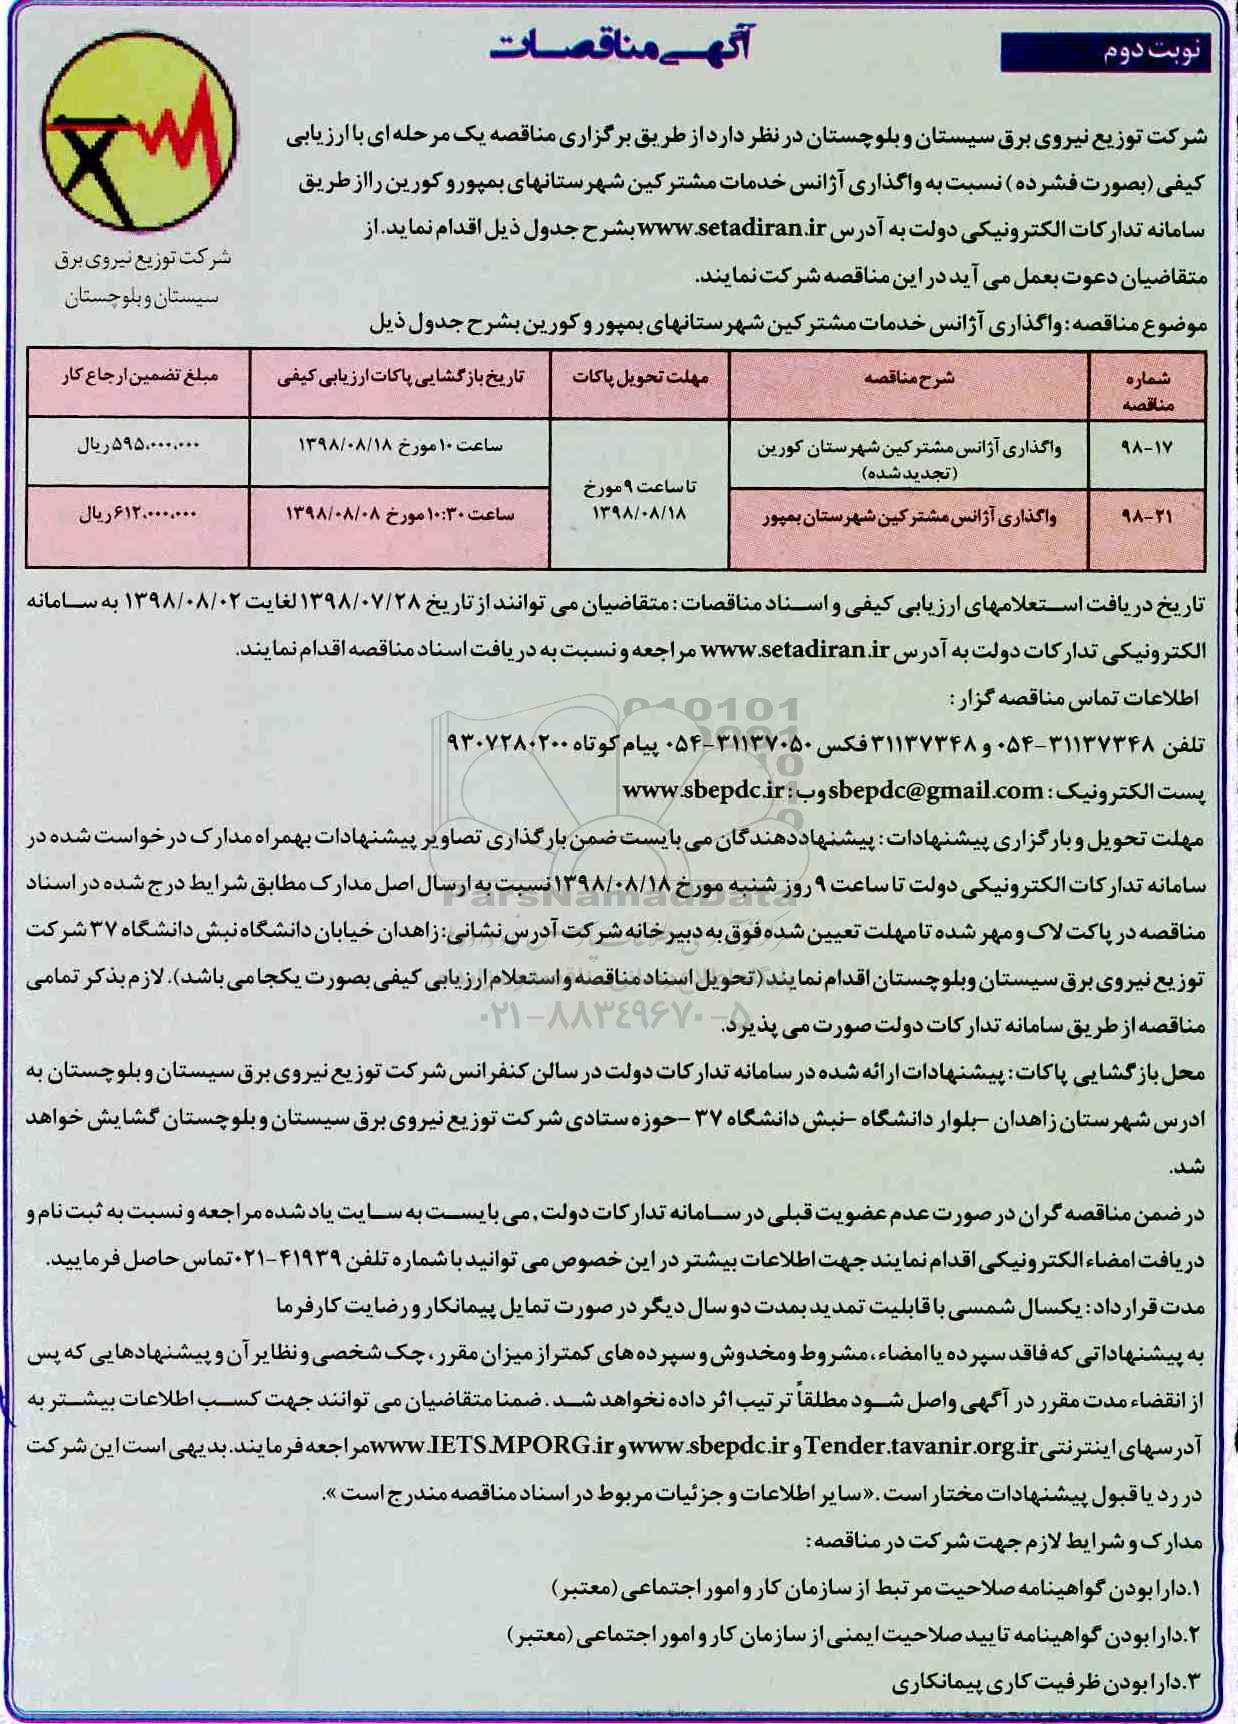 نوبت دوم
آگهی مناقصات
شرکت توزیع نیروی برق سیستان و بلوچستان در نظر دارد از طریق برگزاری مناقصه یک مرحله ای با ارزیابی
کیفی (بصورت فشرده) نسبت به واگذاری آژانس خدمات مشترکین شهرستانهای بمپور و کورین را از طریق
سامانه تدارکات الکترونیکی دولت به آدرس www.setadiran.ir بشرح جدول ذیل اقدام نماید. از
متقاضیان دعوت بعمل می آید در این مناقصه شرکت نمایند.
شرکت توزیع نیروی برق
سیستان و بلوچستان
موضوع مناقصه: واگذاری آژانس خدمات مشترکین شهرستانهای بمپور و کورین بشرح جدول ذیل
شماره مناقصه | شرح مناقصه | مهلت تحویل پاکات | تاریخ بازگشایی پاکات ارزیابی کیفی | مبلغ تضمین ارجاع کار
۹۸-۱۷ | واگذاری آژانس مشترکین شهرستان کورین (تجدید شده) | تا ساعت ۹ مورخ ۱۳۹۸/۰۸/۱۸ | ساعت ۱۰ مورخ ۱۳۹۸/۰۸/۱۸ | ۵۹۵.۰۰۰.۰۰۰ ریال
۹۸-۲۱ | واگذاری آژانس مشترکین شهرستان بمپور | ساعت ۱۰:۳۰ مورخ ۱۳۹۸/۰۸/۰۸ | ۶۱۲.۰۰۰.۰۰۰ ریال
تاریخ دریافت استعلامهای ارزیابی کیفی و اسناد مناقصات: متقاضیان می توانند از تاریخ ۱۳۹۸/۰۷/۲۸ لغایت ۱۳۹۸/۰۸/۰۲ به سامانه
الکترونیکی تدارکات دولت به آدرس www.setadiran.ir مراجعه و نسبت به دریافت اسناد مناقصه اقدام نمایند.
اطلاعات تماس مناقصه گزار:
تلفن ۳۱۱۳۷۳۴۸-۰۵۴ و ۳۱۱۳۷۳۴۸ فکس ۳۱۱۳۷۰۵۰-۰۵۴ پیام کوتاه ۹۳۰۷۲۸۰۲۰۰
پست الکترونیک: sbepdc@gmail.com وب: www.sbepdc.ir
مهلت تحویل و بارگزاری پیشنهادات: پیشنهاددهندگان می بایست ضمن بارگذاری تصاویر پیشنهادات بهمراه مدارک درخواست شده در
سامانه تدارکات الکترونیکی دولت تا ساعت ۹ روز شنبه مورخ ۱۳۹۸/۰۸/۱۸ نسبت به ارسال اصل مدارک مطابق شرایط درج شده در اسناد
مناقصه در پاکت لاک و مهر شده تا مهلت تعیین شده فوق به دبیرخانه شرکت آدرس نشانی: زاهدان خیابان دانشگاه نبش دانشگاه ۳۷ شرکت
توزیع نیروی برق سیستان وبلوچستان اقدام نمایند (تحویل اسناد مناقصه و استعلام ارزیابی کیفی بصورت یکجا می باشد). لازم بذکر تمامی
مناقصه از طریق سامانه تدارکات دولت صورت می پذیرد.
ParsNamadData
۰۲۱-۸۸۳۴۹۶۷۰-۵
محل بازگشایی پاکات: پیشنهادات ارائه شده در سامانه تدارکات دولت در سالن کنفرانس شرکت توزیع نیروی برق سیستان و بلوچستان به
ادرس شهرستان زاهدان -بلوار دانشگاه -نبش دانشگاه ۳۷ -حوزه ستادی شرکت توزیع نیروی برق سیستان و بلوچستان گشایش خواهد
شد.
در ضمن مناقصه گران در صورت عدم عضویت قبلی در سامانه تدارکات دولت, می بایست به سایت یاد شده مراجعه و نسبت به ثبت نام و
دریافت امضاء الکترونیکی اقدام نمایند جهت اطلاعات بیشتر در این خصوص می توانید با شماره تلفن ۴۱۹۳۹-۰۲۱ تماس حاصل فرمایید.
مدت قرارداد: یکسال شمسی با قابلیت تمدید بمدت دو سال دیگر در صورت تمایل پیمانکار و رضایت کارفرما
به پیشنهاداتی که فاقد سپرده یا امضاء، مشروط ومخدوش و سپرده های کمتر از میزان مقرر، چک شخصی و نظایر آن و پیشنهادهایی که پس
از انقضاء مدت مقرر در آگهی واصل شود مطلقاً ترتیب اثر داده نخواهد شد. ضمنا متقاضیان می توانند جهت کسب اطلاعات بیشتر به
آدرسهای اینترنتی Tender.tavanir.org.ir و www.sbepdc.ir و www.IETS.MPORG.ir مراجعه فرمایند. بدیهی است این شرکت
در رد یا قبول پیشنهادات مختار است. «سایر اطلاعات و جزئیات مربوط در اسناد مناقصه مندرج است».
مدارک و شرایط لازم جهت شرکت در مناقصه:
۱.دارا بودن گواهینامه صلاحیت مرتبط از سازمان کار و امور اجتماعی (معتبر)
۲.دارا بودن گواهینامه تایید صلاحیت ایمنی از سازمان کار و امور اجتماعی (معتبر)
۳.دارا بودن ظرفیت کاری پیمانکاری